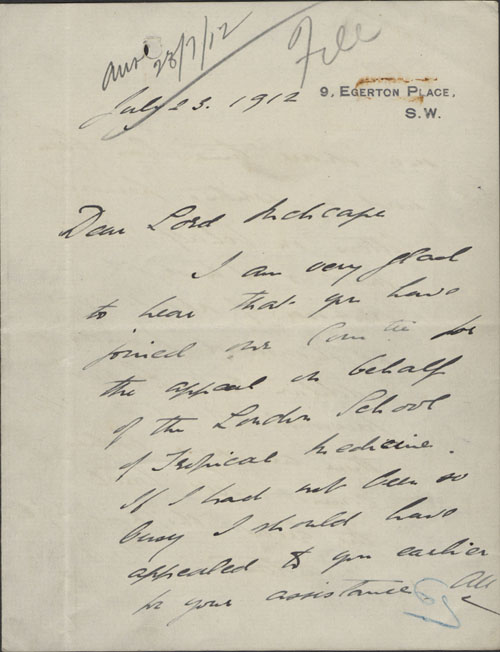 23/7/12
File
July 23. 1912
9, EGERTON PLACE,
S.W.
Dear Lord Inchcape
I am very glad
to hear that you have
joined our Comtee for
the appeal on behalf
of the London School
of Tropical Medicine.
If I had not been so
busy I should have
appealed to you earlier
for your assistance. All